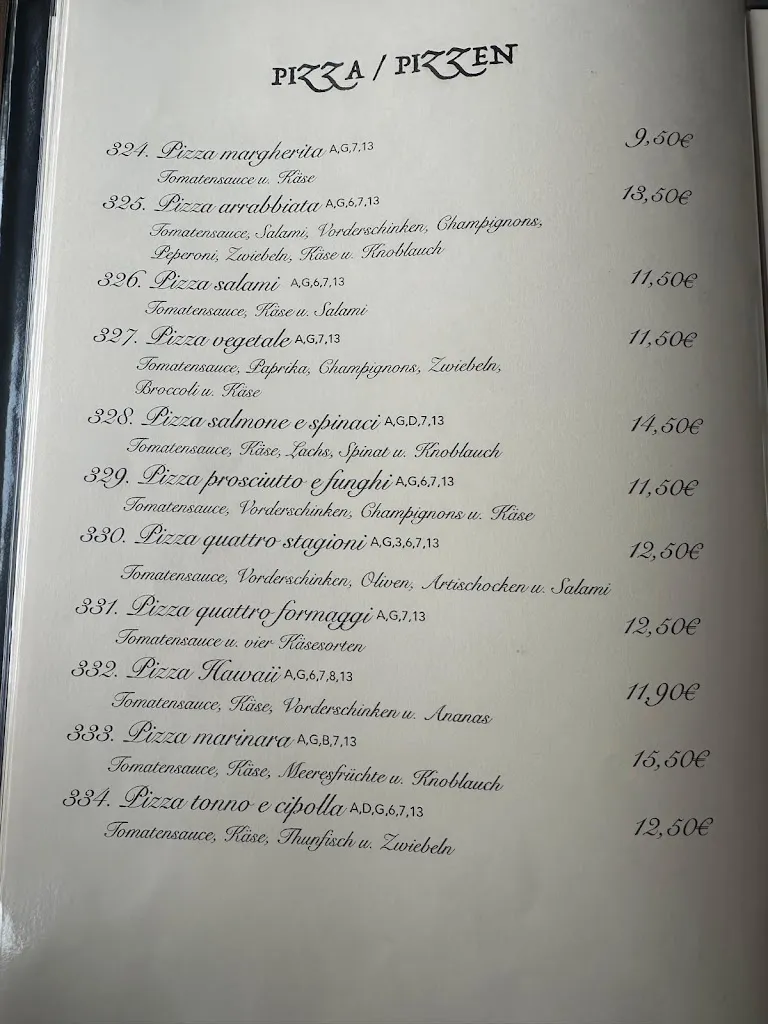 PIZZA / PIZZEN
324. Pizza margherita A,G,7,13 9,50€
Tomatensauce u. Käse
325. Pizza arrabbiata A,G,6,7,13 13,50€
Tomatensauce, Salami, Vorderschinken, Champignons,
Peperoni, Zwiebeln, Käse u. Knoblauch
326. Pizza salami A,G,6,7,13 11,50€
Tomatensauce, Käse u. Salami
327. Pizza vegetale A,G,7,13 11,50€
Tomatensauce, Paprika, Champignons, Zwiebeln,
Broccoli u. Käse
328. Pizza salmone e spinaci A,G,D,7,13 14,50€
Tomatensauce, Käse, Lachs, Spinat u. Knoblauch
329. Pizza prosciutto e funghi A,G,6,7,13 11,50€
Tomatensauce, Vorderschinken, Champignons u. Käse
330. Pizza quattro stagioni A,G,3,6,7,13 12,50€
Tomatensauce, Vorderschinken, Oliven, Artischocken u. Salami
331. Pizza quattro formaggi A,G,7,13 12,50€
Tomatensauce u. vier Käsesorten
332. Pizza Hawaii A,G,6,7,8,13 11,90€
Tomatensauce, Käse, Vorderschinken u. Ananas
333. Pizza marinara A,G,B,7,13 15,50€
Tomatensauce, Käse, Meeresfrüchte u. Knoblauch
334. Pizza tonno e cipolla A,D,G,6,7,13 12,50€
Tomatensauce, Käse, Thunfisch u. Zwiebeln